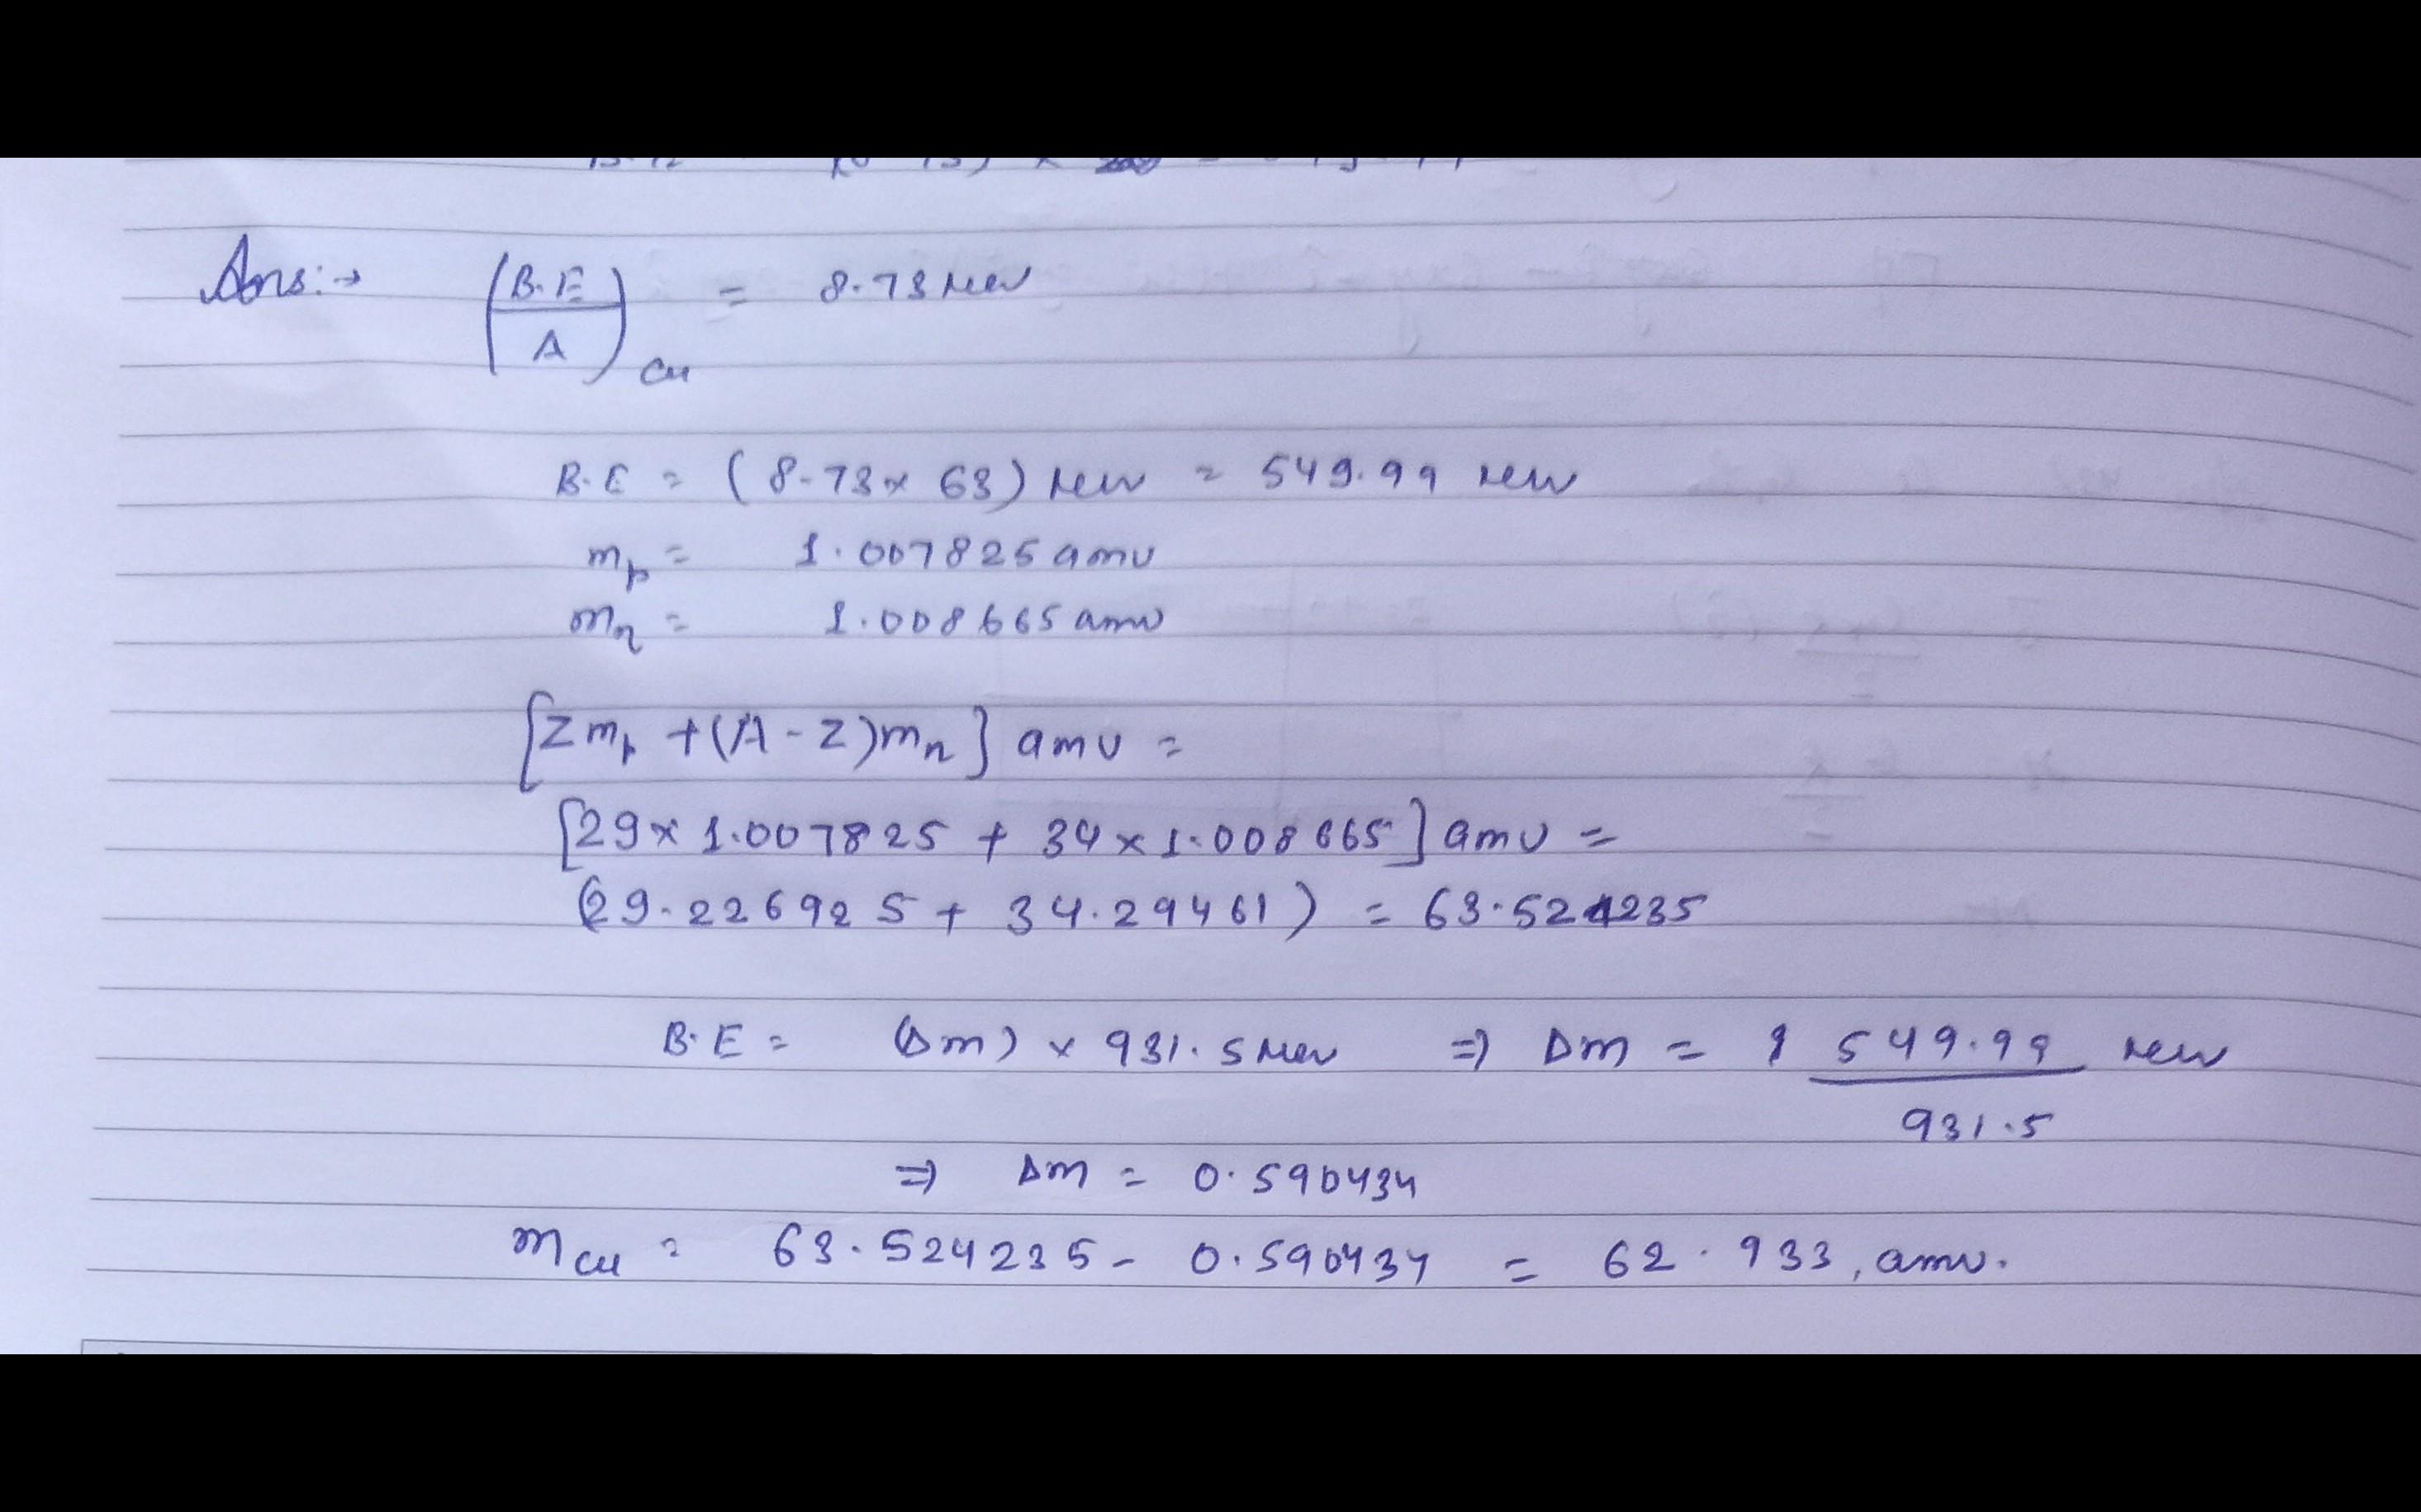 Ans:→ (B.E/A)Cu = 8.73 Mev
B.E = (8.73 × 63) Mev = 549.99 Mev
mp = 1.007825 amu
mn = 1.008665 amu
[Zmp + (A-Z)mn] amu =
[29 × 1.007825 + 34 × 1.008665] amu =
(29.226925 + 34.29461) = 63.524235
B.E = (Δm) × 931.5 Mev ⇒ Δm = 549.99/931.5 Mev
⇒ Δm = 0.590434
mCu = 63.524235 - 0.590434 = 62.933, amu.